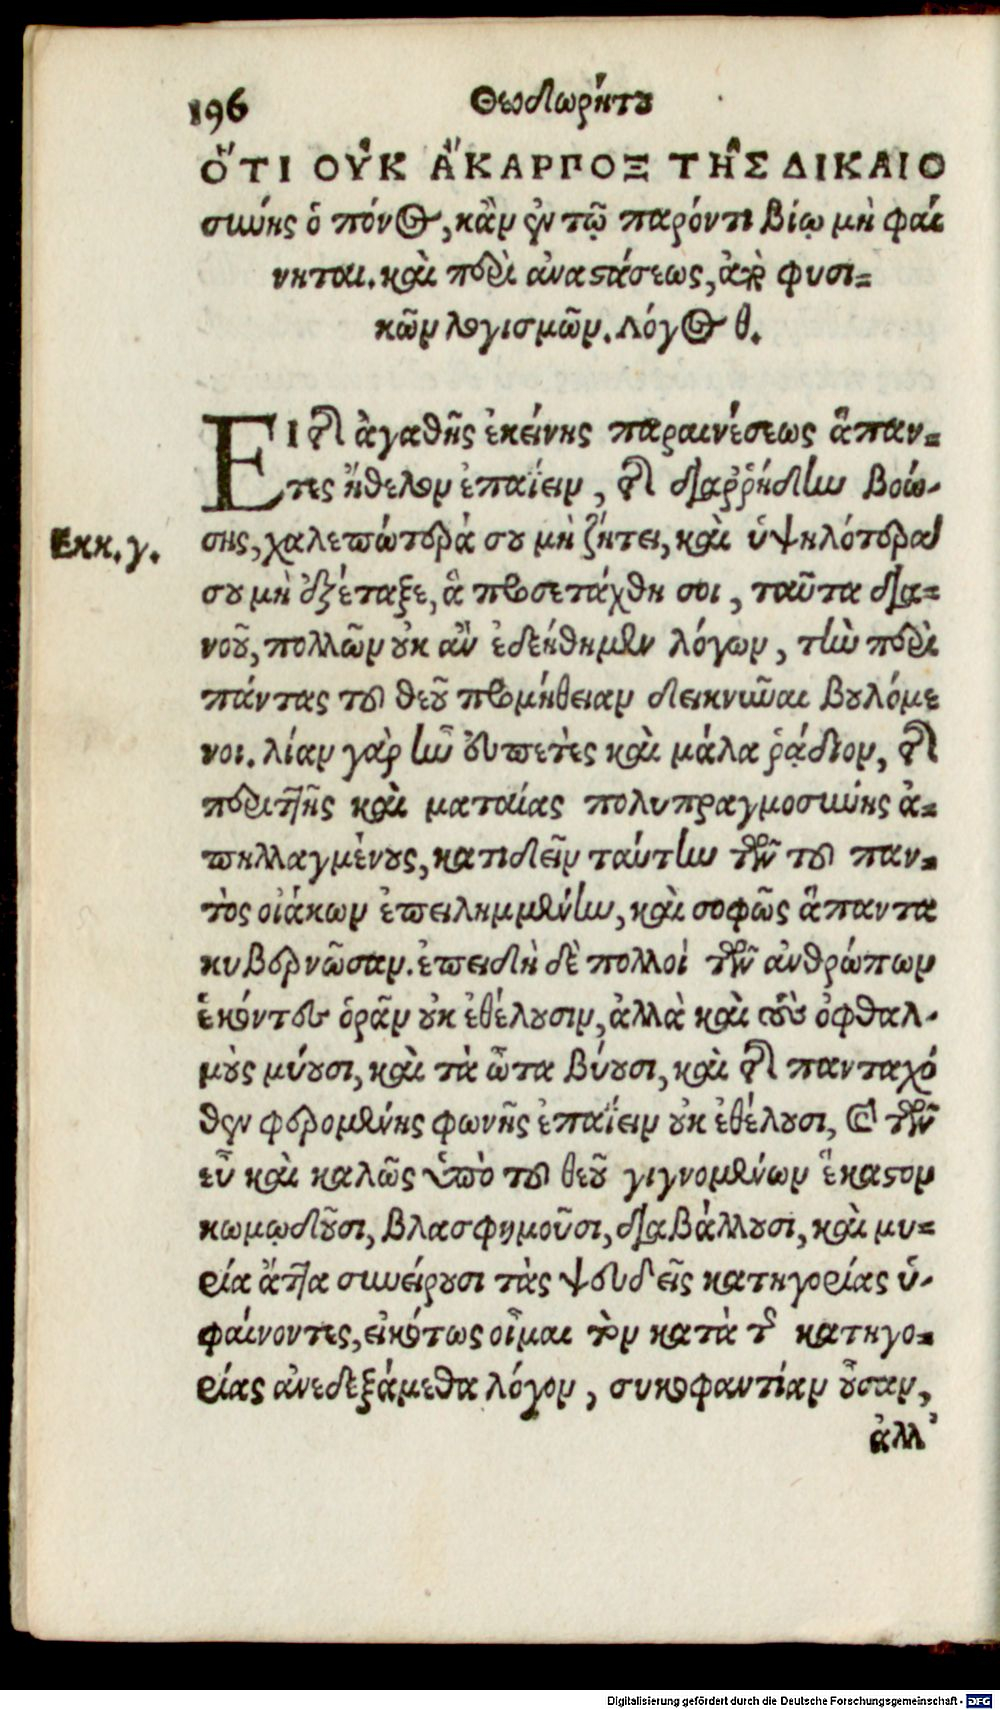 196
Θεοδωρήτου
ὍΤΙ ΟΥ̓Κ ἌΚΑΡΓΟΞ ΤΗ͂Σ ΔΙΚΑΙΟ
σύνης ὁ πόνος, κἂν ἐν τῷ παρόντι βίῳ μὴ φαί
νηται. καὶ περὶ ἀναστάσεως, ἀπὸ φυσι=
κῶν λογισμῶν. Λόγος θ.
ΕΙ τῆς ἀγαθῆς ἐκείνης παραινέσεως ἅπαν=
τες ἤθελον ἐπαΐειν, τῆς διαῤῥήδην βοώ-
Εκκ. γ.
σης, χαλεπώτερά σου μὴ ζήτει, καὶ ὑψηλότερά
σου μὴ ἐξέταζε, ἃ προσετάχθη σοι, ταῦτα δια=
νοῦ, πολλῶν οὐκ ἂν ἐδεήθημεν λόγων, τὴν περὶ
πάντας τοῦ θεοῦ προμήθειαν δεικνῦναι βουλόμε
νοι. λίαν γὰρ ἦν εὐπετὲς καὶ μάλα ῥᾴδιον, τῆς
περιττῆς καὶ ματαίας πολυπραγμοσύνης ἀ=
πηλλαγμένους, κατιδεῖν ταύτην τῶν τοῦ παν=
τὸς οἰάκων ἐπειλημμένην, καὶ σοφῶς ἅπαντα
κυβερνῶσαν. ἐπειδὴ δὲ πολλοὶ τῶν ἀνθρώπων
ἑκόντες ὁρᾶν οὐκ ἐθέλουσιν, ἀλλὰ καὶ τοὺς ὀφθαλ-
μοὺς μύουσι, καὶ τὰ ὦτα βύουσι, καὶ τῆς πανταχό
θεν φερομένης φωνῆς ἐπαΐειν οὐκ ἐθέλουσι, καὶ τῶν
εὖ καὶ καλῶς ὑπὸ τοῦ θεοῦ γιγνομένων ἕκαστον
κωμῳδοῦσι, βλασφημοῦσι, διαβάλλουσι, καὶ μυ=
ρία ἄττα συνείρουσι τὰς ψευδεῖς κατηγορίας ὑ-
φαίνοντες, εἰκότως οἶμαι τὸν κατὰ τῆς κατηγο=
ρίας ἀνεδεξάμεθα λόγον, συκοφαντίαν οὖσαν,
ἀλλ'
Digitalisierung gefördert durch die Deutsche Forschungsgemeinschaft - DFG